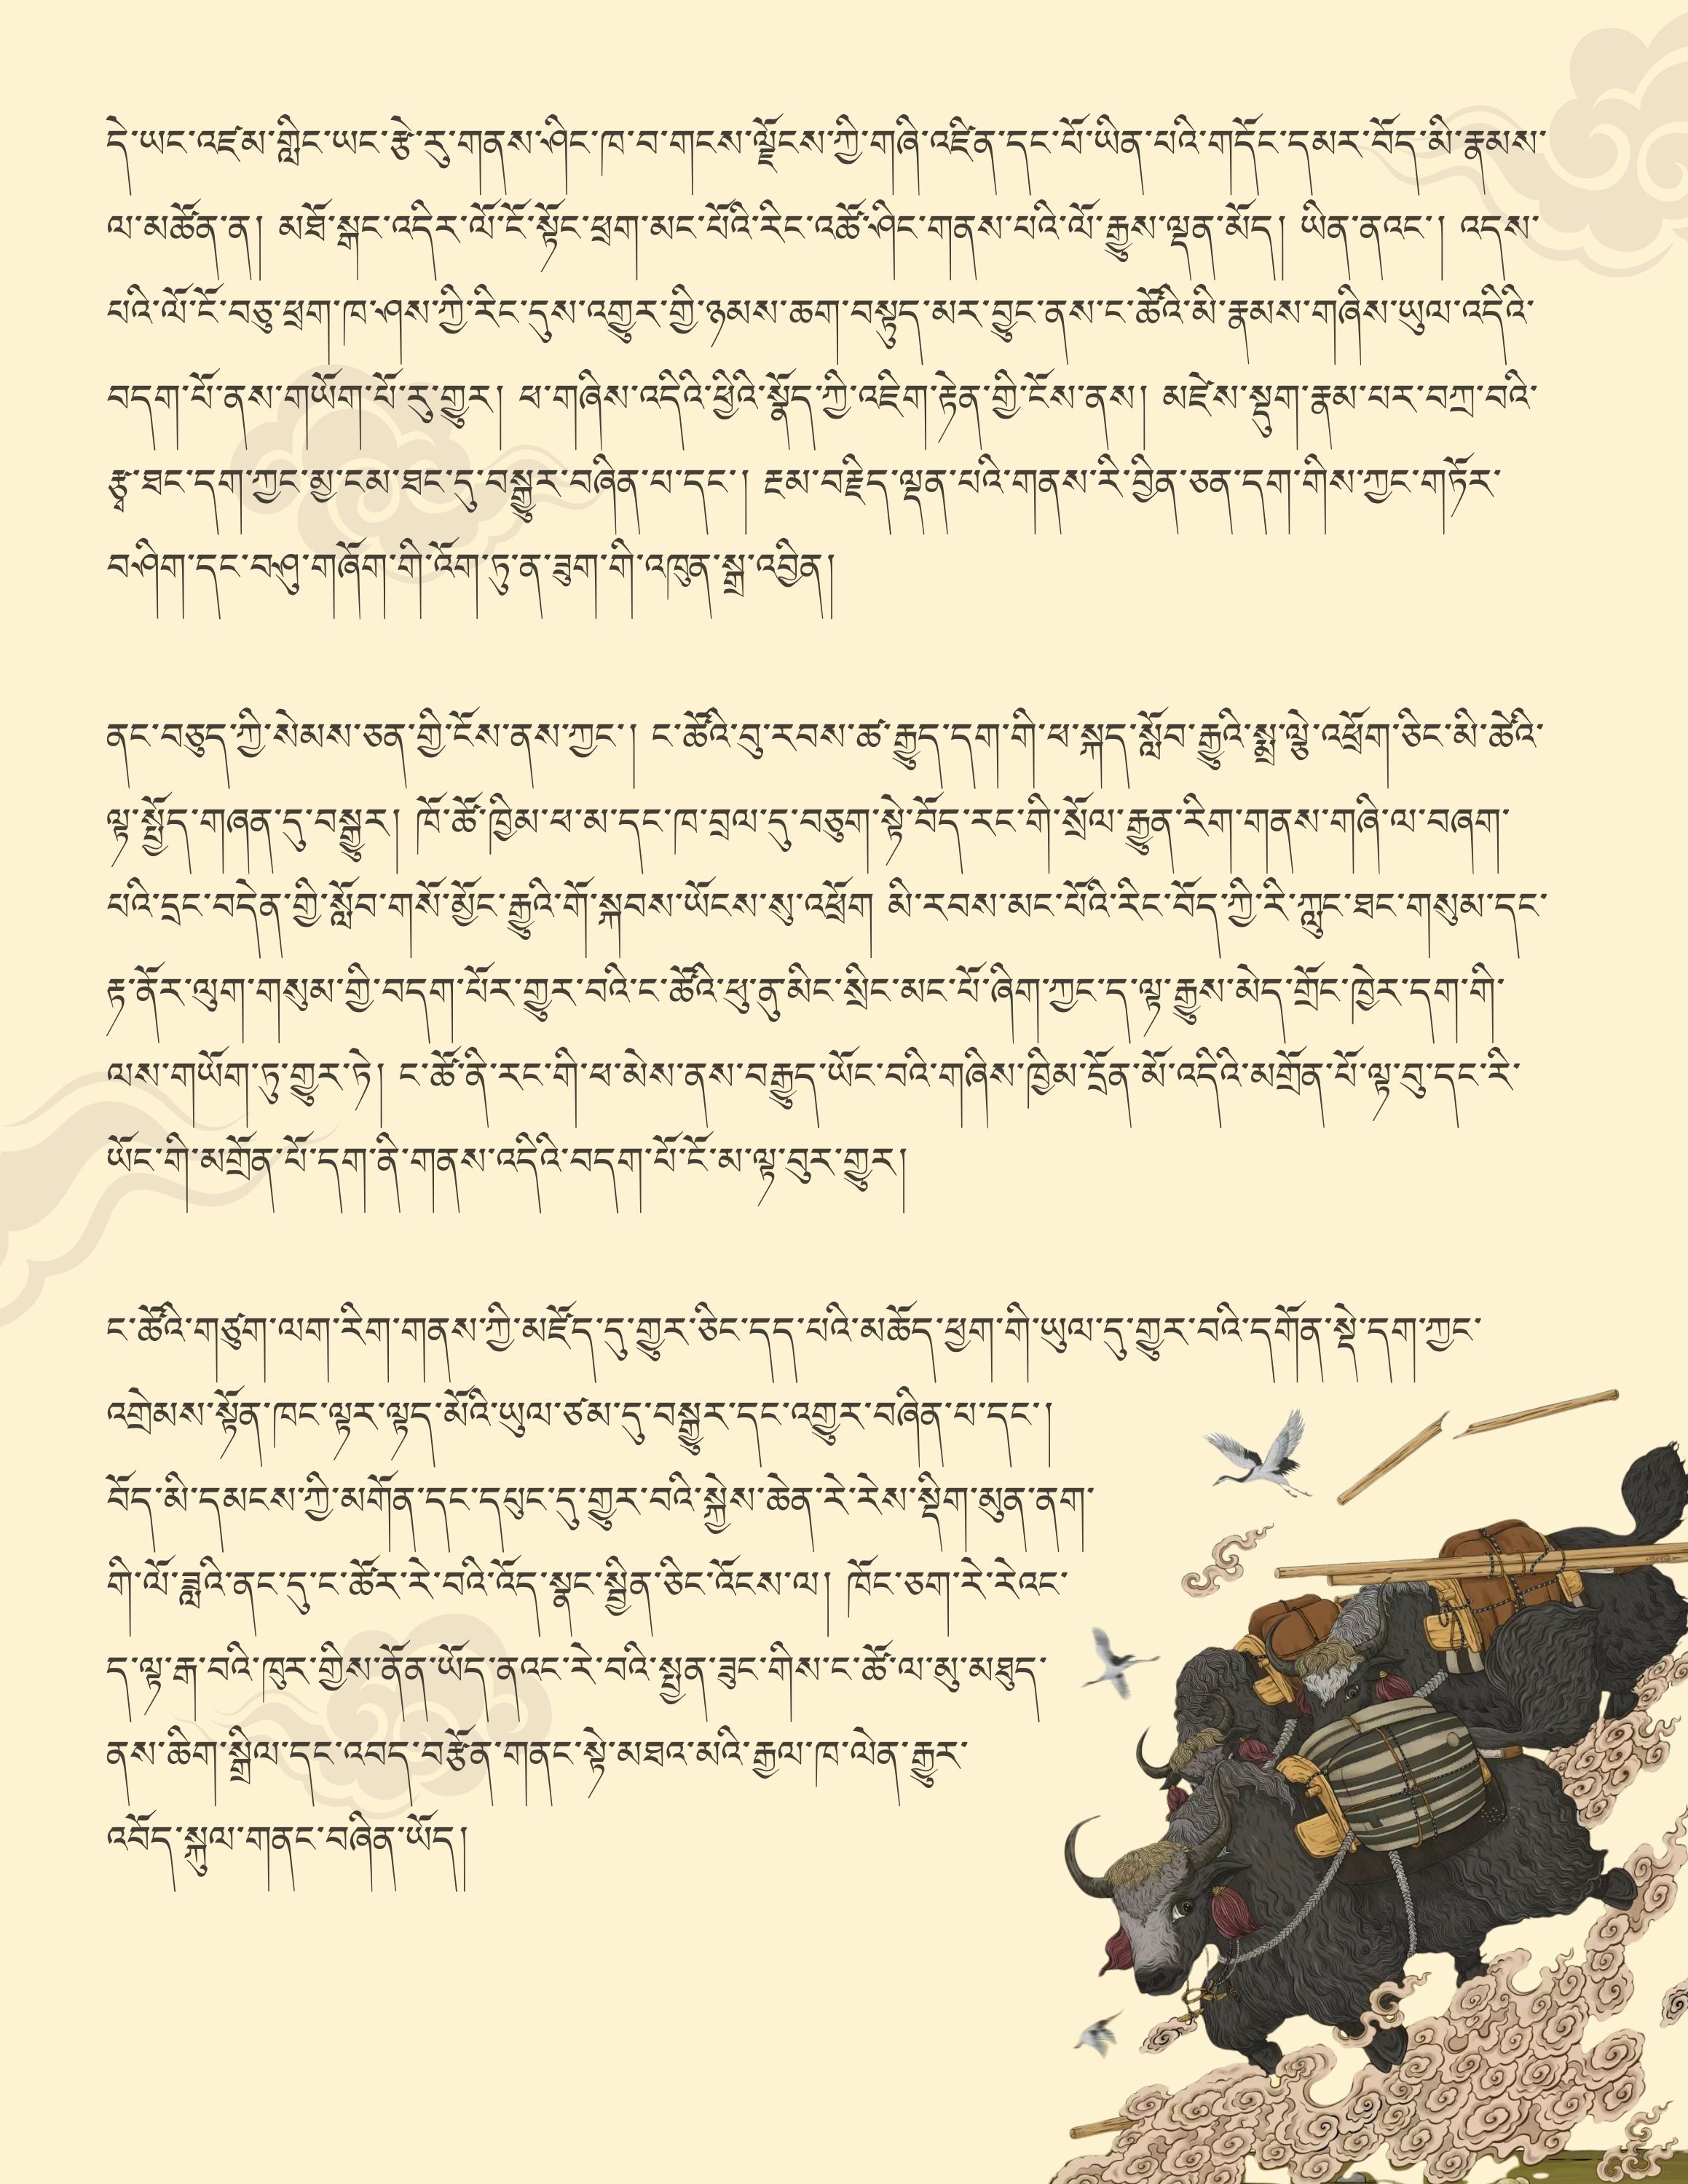 དེ་ཡང་འཛམ་གླིང་ཡང་རྩེ་རུ་གནས་ཤིང་ཁ་བ་གངས་ལྗོངས་ཀྱི་གཞི་འཛིན་དང་པོ་ཡིན་པའི་གདོང་དམར་བོད་མི་རྣམས་
ལ་མཚོན་ན། མཐོ་སྒང་འདིར་ལོ་ངོ་སྟོང་ཕྲག་མང་པོའི་རིང་འཚོ་ཤིང་གནས་པའི་ལོ་རྒྱུས་ལྡན་མོད། ཡིན་ནའང་། འདས་
པའི་ལོ་ངོ་བཅུ་ཕྲག་ཁ་ཤས་ཀྱི་རིང་དུས་འགྱུར་གྱི་ཉམས་ཆག་བསྟུད་མར་བྱུང་ནས་ང་ཚོའི་མི་རྣམས་གཞིས་ཡུལ་འདིའི་
བདག་པོ་ནས་གཡོག་པོ་རུ་གྱུར། ཕ་གཞིས་འདིའི་ཕྱིའི་སྣོད་ཀྱི་འཇིག་རྟེན་གྱི་ངོས་ནས། མཛེས་སྡུག་རྣམ་པར་བཀྲ་བའི་
རྩྭ་ཐང་དག་ཀྱང་མྱ་ངམ་ཐང་དུ་བསྒྱུར་བཞིན་པ་དང་། རྔམ་བརྗིད་ལྡན་པའི་གནས་རི་བྱིན་ཅན་དག་གིས་ཀྱང་གཏོར་
བཤིག་དང་བཤུ་གཞོག་གི་འོག་ཏུ་ན་ཟུག་གི་འཁུན་སྒྲ་འབྱིན།

ནང་བཅུད་ཀྱི་སེམས་ཅན་གྱི་ངོས་ནས་ཀྱང་། ང་ཚོའི་བུ་རབས་ཚ་རྒྱུད་དག་གི་ཕ་སྐད་སློབ་རྒྱུའི་སྨྲ་ལྕེ་འཕྲོག་ཅིང་མི་ཚེའི་
ལྟ་སྤྱོད་གཞན་དུ་བསྒྱུར། ཁོ་ཚོ་ཁྱིམ་ཕ་མ་དང་ཁ་བྲལ་དུ་བཅུག་སྟེ་བོད་རང་གི་སྲོལ་རྒྱུན་རིག་གནས་གཞི་ལ་བཞག་
པའི་དྲང་བདེན་གྱི་སློབ་གསོ་མྱོང་རྒྱུའི་གོ་སྐབས་ཡོངས་སུ་འཕྲོག མི་རབས་མང་པོའི་རིང་བོད་ཀྱི་རི་ཀླུང་ཐང་གསུམ་དང་
རྟ་ནོར་ལུག་གསུམ་གྱི་བདག་པོར་གྱུར་བའི་ང་ཚོའི་ཕུ་ནུ་མིང་སྲིང་མང་པོ་ཞིག་ཀྱང་ད་ལྟ་རྒྱུས་མེད་གྲོང་ཁྱེར་དག་གི་
ལས་གཡོག་ཏུ་གྱུར་ཏེ། ང་ཚོ་ནི་རང་གི་ཕ་མེས་ནས་བརྒྱུད་ཡོང་བའི་གཞིས་ཁྱིམ་དྲོན་མོ་འདིའི་མགྲོན་པོ་ལྟ་བུ་དང་རི་
ཡོང་གི་མགྲོན་པོ་དག་ནི་གནས་འདིའི་བདག་པོ་ངོ་མ་ལྟ་བུར་གྱུར།

ང་ཚོའི་གཙུག་ལག་རིག་གནས་ཀྱི་མཛོད་དུ་གྱུར་ཅིང་དད་པའི་མཆོད་ཕྱག་གི་ཡུལ་དུ་གྱུར་བའི་དགོན་སྡེ་དག་ཀྱང་
འགྲེམས་སྟོན་ཁང་ལྟར་ལྟད་མོའི་ཡུལ་ཙམ་དུ་བསྒྱུར་དང་འགྱུར་བཞིན་པ་དང་།
བོད་མི་དམངས་ཀྱི་མགོན་དང་དཔུང་དུ་གྱུར་བའི་སྐྱེས་ཆེན་རེ་རེས་སྡིག་མུན་ནག་
གི་ལོ་ཟླའི་ནང་དུ་ང་ཚོར་རེ་བའི་འོད་སྣང་སྦྱིན་ཅིང་འོངས་ལ། ཁོང་ཅག་རེ་རེའང་
ད་ལྟ་རྒ་བའི་ཁུར་གྱིས་ནོན་ཡོད་ནའང་རེ་བའི་སྤྱན་ཟུང་གིས་ང་ཚོ་ལ་མུ་མཐུད་
ནས་ཆིག་སྒྲིལ་དང་འབད་བརྩོན་གནང་སྟེ་མཐའ་མའི་རྒྱལ་ཁ་ལེན་རྒྱུར་
འབོད་སྐུལ་གནང་བཞིན་ཡོད།